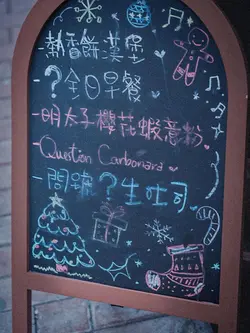 -熱香餅.漢堡
-?全日早餐
-明太子櫻花蝦意粉
-Question Carbonara
-問號?生吐司